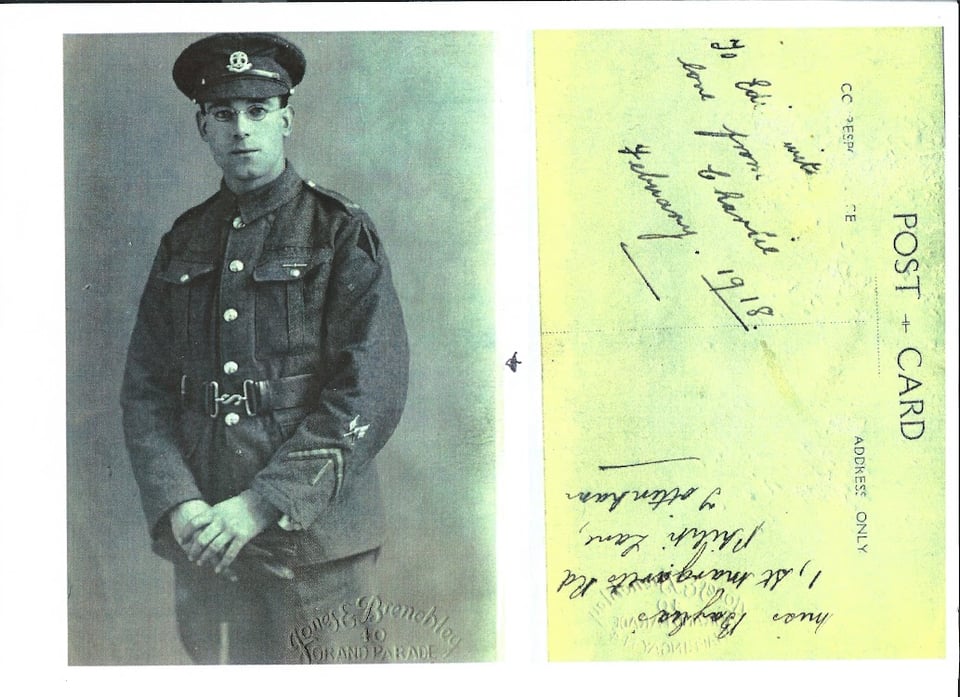 & Brenchley
40
GRAND PARADE
POST + CARD
ADDRESS ONLY
To Edi with
love from Charlie
February. 1918.
Miss Bayliss
1, St Margarets Rd
Philip Lane,
Tottenham